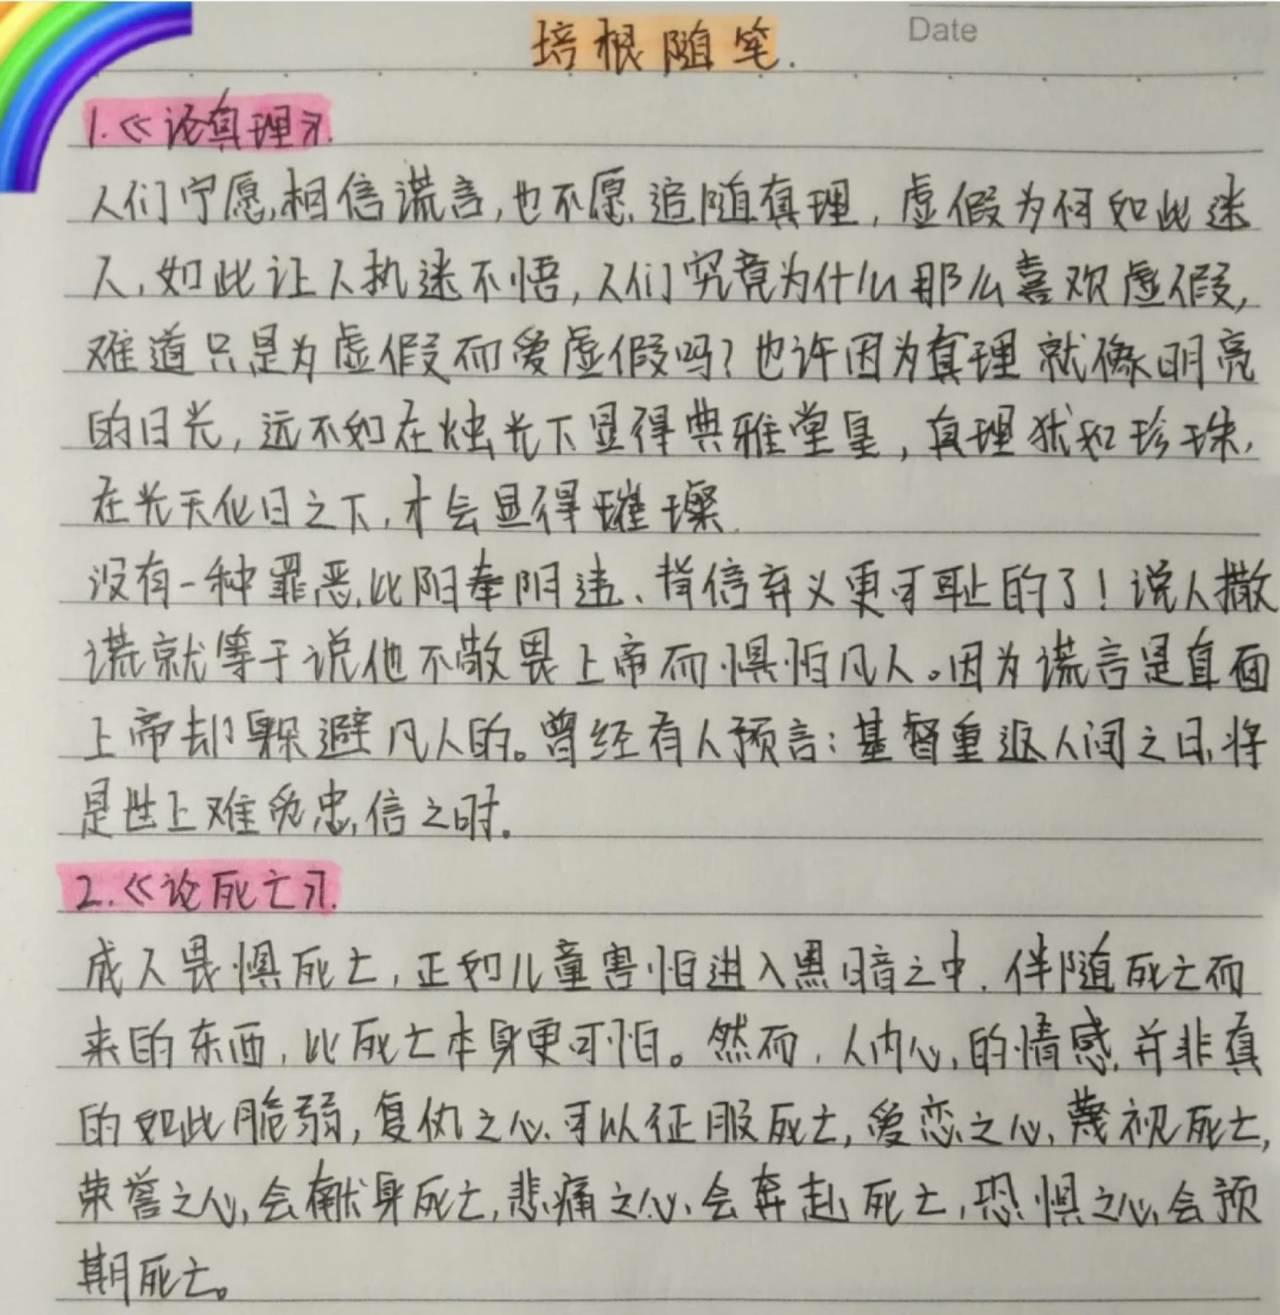 Date
培根随笔.
1.《论真理》.
人们宁愿相信谎言,也不愿追随真理,虚假为何如此迷
人,如此让人执迷不悟,人们究竟为什么那么喜欢虚假,
难道只是为虚假而爱虚假吗?也许因为真理就像明亮
的日光,远不如在烛光下显得典雅堂皇,真理犹如珍珠,
在光天化日之下,才会显得璀璨.
没有一种罪恶比阳奉阴违、背信弃义更可耻的了!说人撒
谎就等于说他不敬畏上帝而惧怕凡人。因为谎言是直面
上帝却躲避凡人的。曾经有人预言:基督重返人间之日,将
是世上难觅忠信之时。
2.《论死亡》.
成人畏惧死亡,正如儿童害怕进入黑暗之中.伴随死亡而
来的东西,比死亡本身更可怕。然而,人内心的情感并非真
的如此脆弱,复仇之心可以征服死亡,爱恋之心,蔑视死亡,
荣誉之心,会献身死亡,悲痛之心,会奔赴死亡,恐惧之心会预
期死亡。